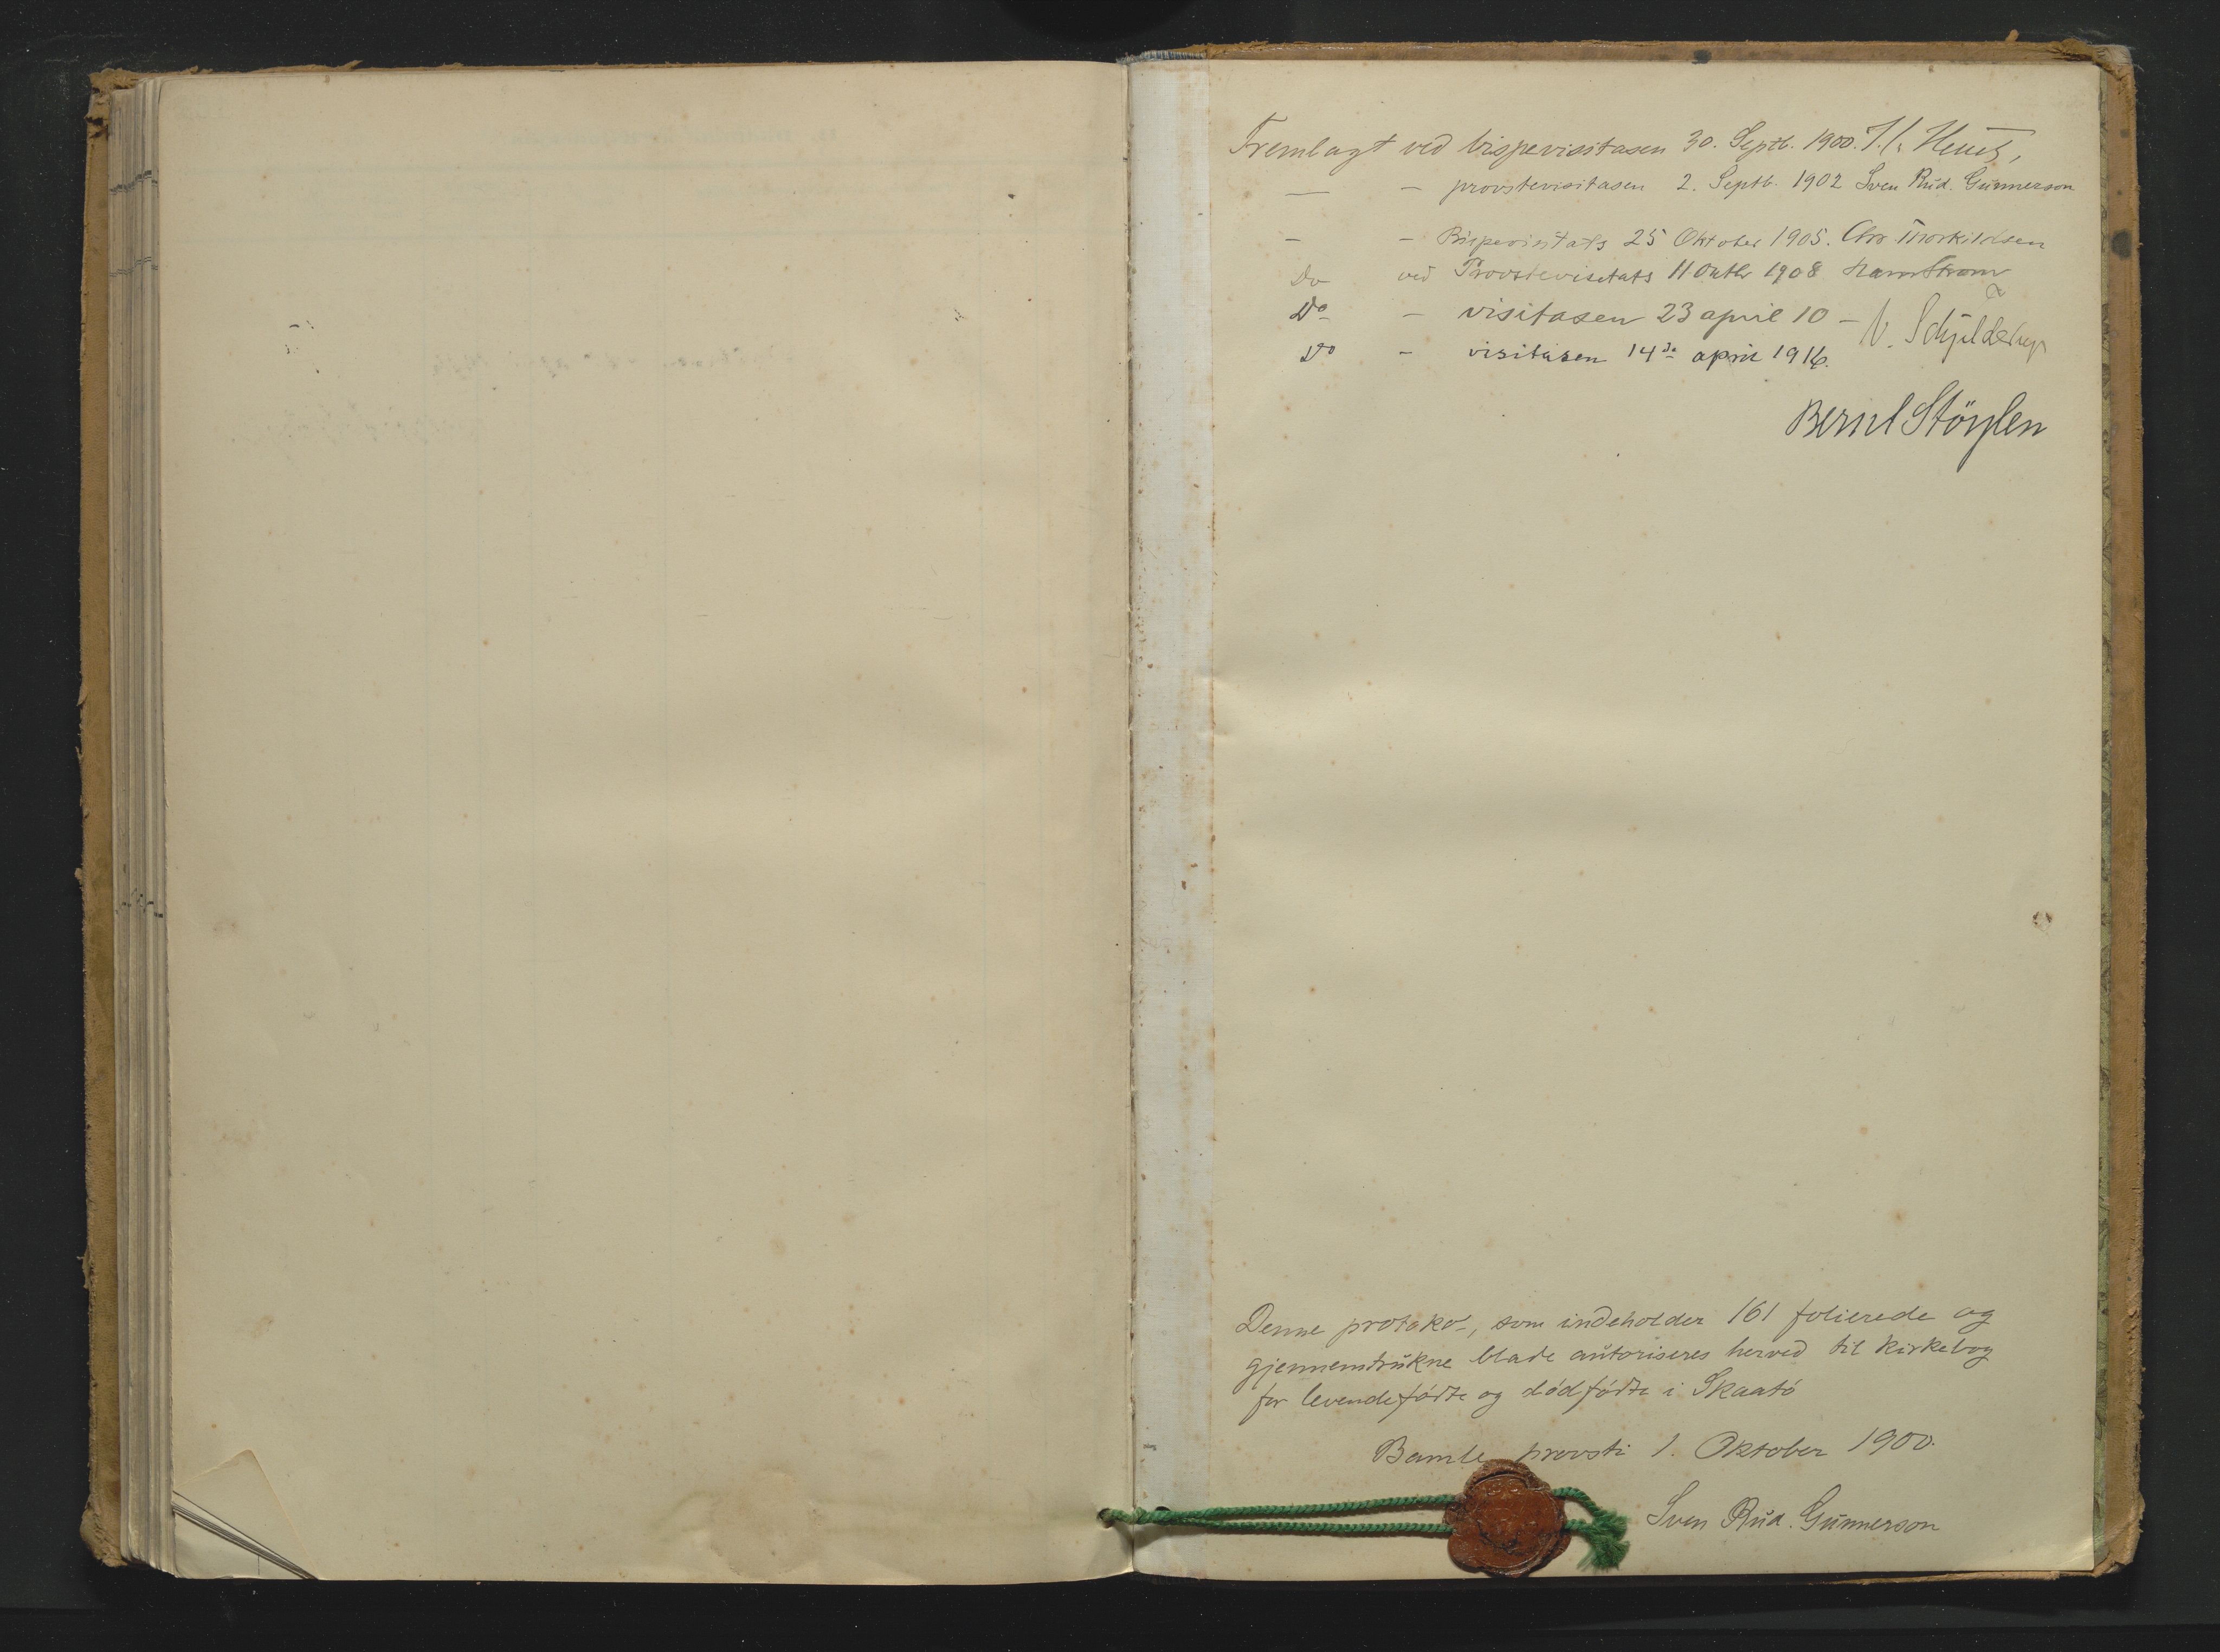 Fremlagt ved bispevisitasen 30. Septb. 1900. J. C. Heuch,
— – provstevisitasen 2. Septb. 1902 Sven Rud. Gunnerson
– – Bispevisitats 25 Oktober 1905. Chr. Thorkildsen
Do ved Provstevisitats 11 Oktbr 1908 Strøm
Do – visitasen 23 april 10 – Schjelderup
Do – visitasen 14de april 1916.
Bernt Støylen
Denne protokol, som indeholder 161 folierede og
gjennemtrukne blade autoriseres herved til kirkebog
for levendefødte og dødfødte i Skaatø
Bamle provsti 1. Oktober 1900.
Sven Rud. Gunnerson